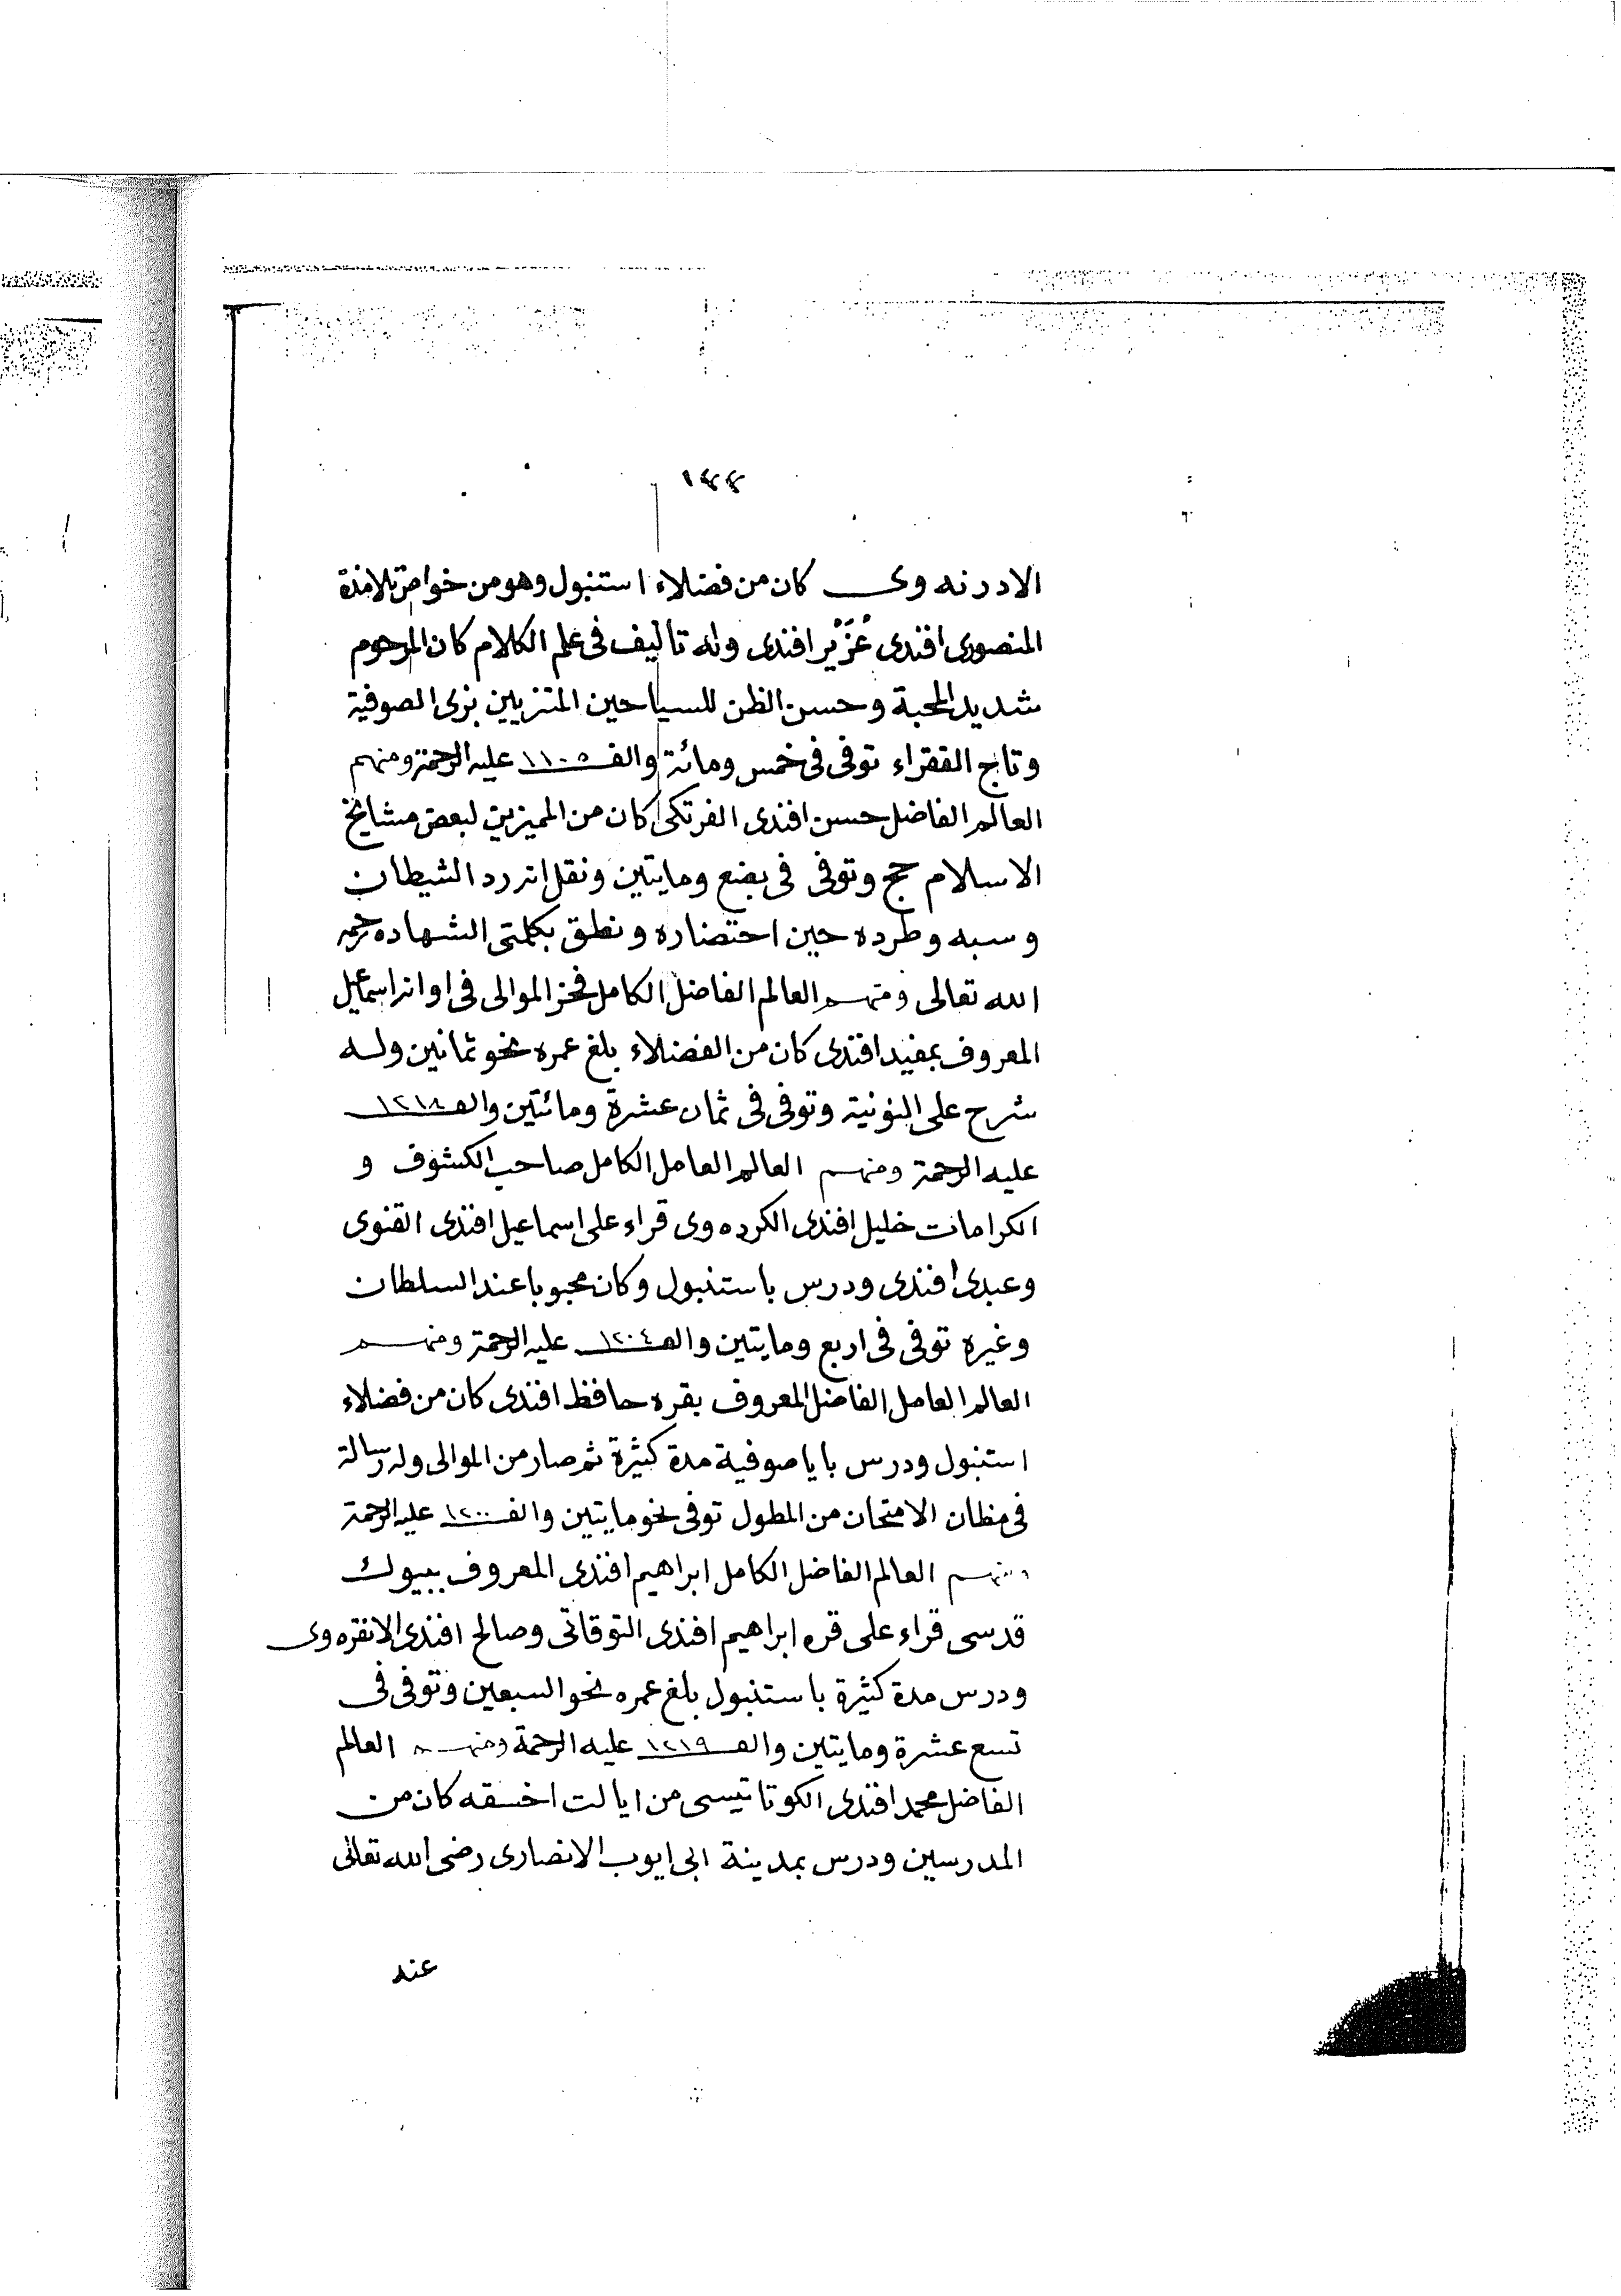 ١٤٤
الادرنه وى كان من فضلاء استنبول وهو من خواص تلامذة
المنصورى افندى عُزَيْر افندى وله تأليف فى علم الكلام كان المرحوم
شديد المحبة وحسن الظن للسياحين المتزيين بزى الصوفية
وتاج الفقراء توفى فى خمس ومائة والف ١١٠٥ عليه الرحمة ومنهم
العالم الفاضل حسن افندى الفرتكى كان من المميزين لبعض مشايخ
الاسلام حج وتوفى فى بضع ومايتين ونقل انه رد الشيطان
وسبه وطرده حين احتضاره ونطق بكلمتى الشهاده رحمه
الله تعالى ومنهم العالم الفاضل الكامل فخر الموالى فى اوانه اسماعيل
المعروف بمفيد افندى كان من الفضلاء بلغ عمره نحو ثمانين وله
شرح على النونية وتوفى فى ثمان عشرة ومائتين والف ١٢١٨
عليه الرحمة ومنهم العالم العامل الكامل صاحب الكشوف و
الكرامات خليل افندى الكرده وى قراء على اسماعيل افندى القنوى
وعبدى افندى ودرس باستنبول وكان محبوبا عند السلطان
وغيره توفى فى اربع ومايتين والف ١٢٠٤ عليه الرحمة ومنهم
العالم العامل الفاضل المعروف بقره حافظ افندى كان من فضلاء
استنبول ودرس باياصوفية مدة كثيرة ثم صار من الموالى وله رسالة
فى مظان الامتحان من المطول توفى نحو مايتين والف ١٢٠٠ عليه الرحمة
ومنهم العالم الفاضل الكامل ابراهيم افندى المعروف ببيوك
قدسى قراء على قره ابراهيم افندى التوقاتى وصالح افندى الانقره وى
ودرس مدة كثيرة باستنبول بلغ عمره نحو السبعين وتوفى فى
تسع عشرة ومايتين والف ١٢١٩ عليه الرحمة ومنهم العالم
الفاضل محمد افندى الكوتاتيسى من ايالت اخسقه كان من
المدرسين ودرس بمدينة ابى ايوب الانصارى رضى الله تعالى
عنه